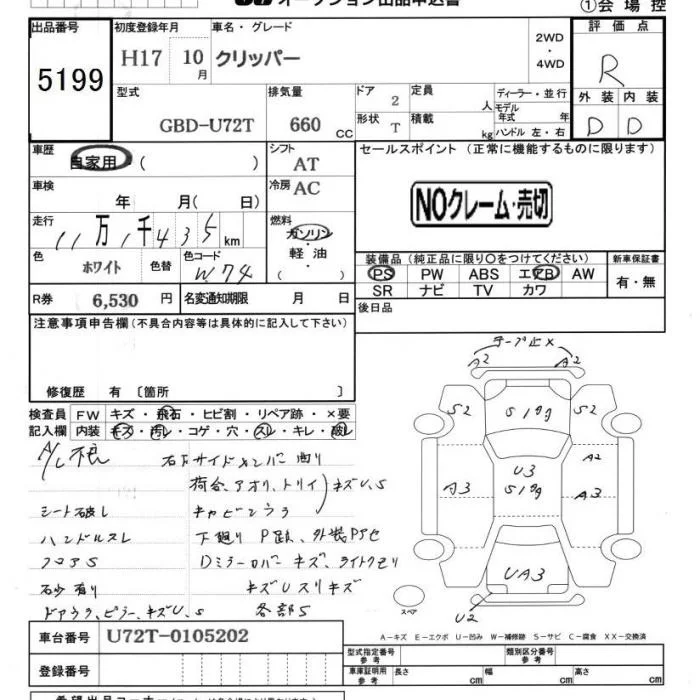 オークション出品申込書
①会場控
出品番号
5199
初度登録年月
H17 10月
車名・グレード
クリッパー
2WD
・
4WD
評価点
R
外装 内装
D D
型式
GBD-U72T
排気量
660 CC
ドア 2
形状 T
定員 人
積載 kg
ディーラー・並行
モデル年式 年
ハンドル 左・右
車歴
自家用 ( )
シフト
AT
車検
年 月( 日)
冷房
AC
走行
11万1千435km
燃料
ガソリン
・
軽油
( )
色
ホワイト
色替
色コード
W74
R券 6,530 円
名変通知期限 月 日
セールスポイント (正常に機能するものに限ります)
NOクレーム・売切
装備品 (純正品に限り○をつけてください)
PS PW ABS エアB AW
SR ナビ TV カワ
新車保証書
有・無
後日品
注意事項申告欄 (不具合内容等は具体的に記入して下さい)
修復歴 有 〔箇所 〕
検査員記入欄
FW キズ・飛石・ヒビ割・リペア跡・×要
内装 キズ・汚レ・コゲ・穴・スレ・キレ・破レ
A/C不良
右Fサイドメンバー曲り
荷台、アオリ、トリイ キズU、S
シート破レ
キャビンウラ
ハンドルスレ
フロアS
石砂有り
キズUスリキズ
ドアウラ、ピラー、キズU、S
各部S
テープ止×
A2 A2
S2 S199 S2
A2
U3
A3 S199 A3
UA3
U2
スペア
A-キズ E-エクボ U-凹み W-補修跡 S-サビ C-腐食 XX-交換済
車台番号 U72T-0105202
登録番号
型式指定番号 参考
類別区分番号 参考
車庫証明用 参考
長さ cm
幅 cm
高さ cm